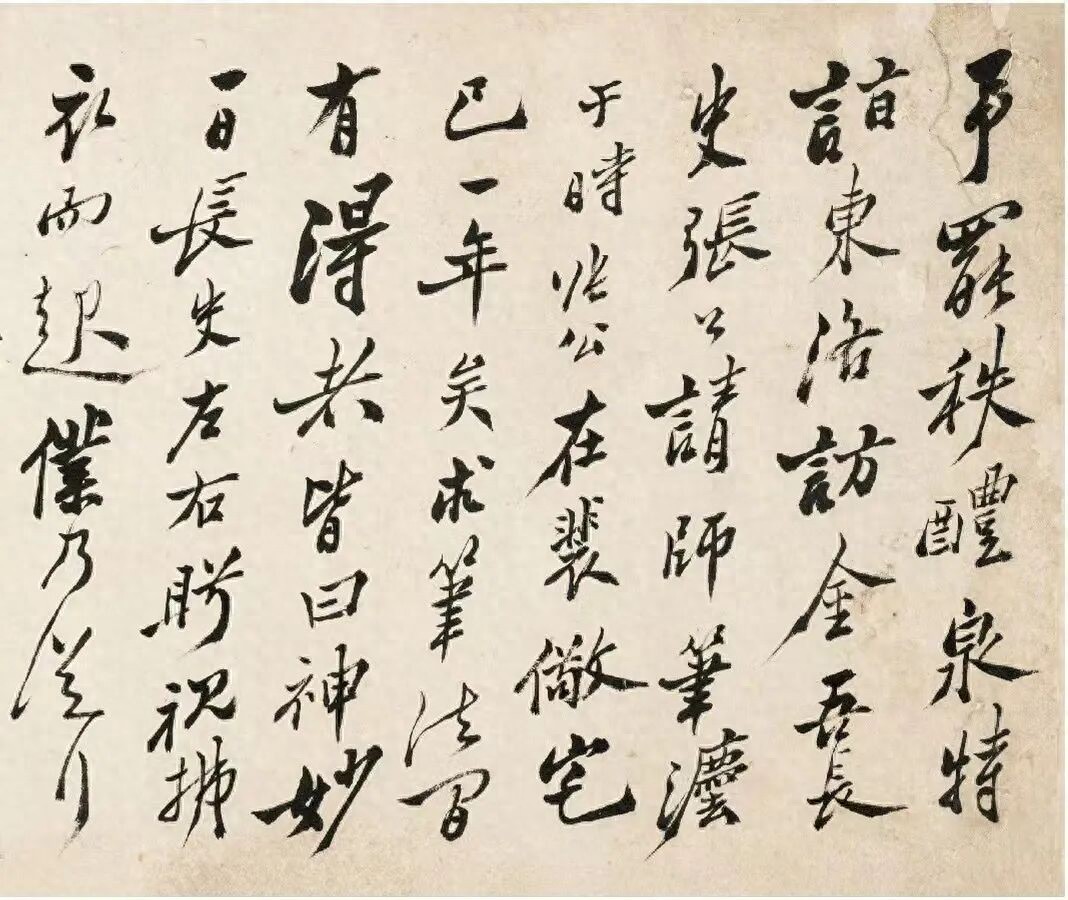 予罷秩醴泉特
詣東洛訪金吾長
史張公請師筆灋
于時張公在裴儆宅
已一年矣求筆法間
有得者皆曰神妙
一日長史左右眄視拂
衣而起僕乃從行